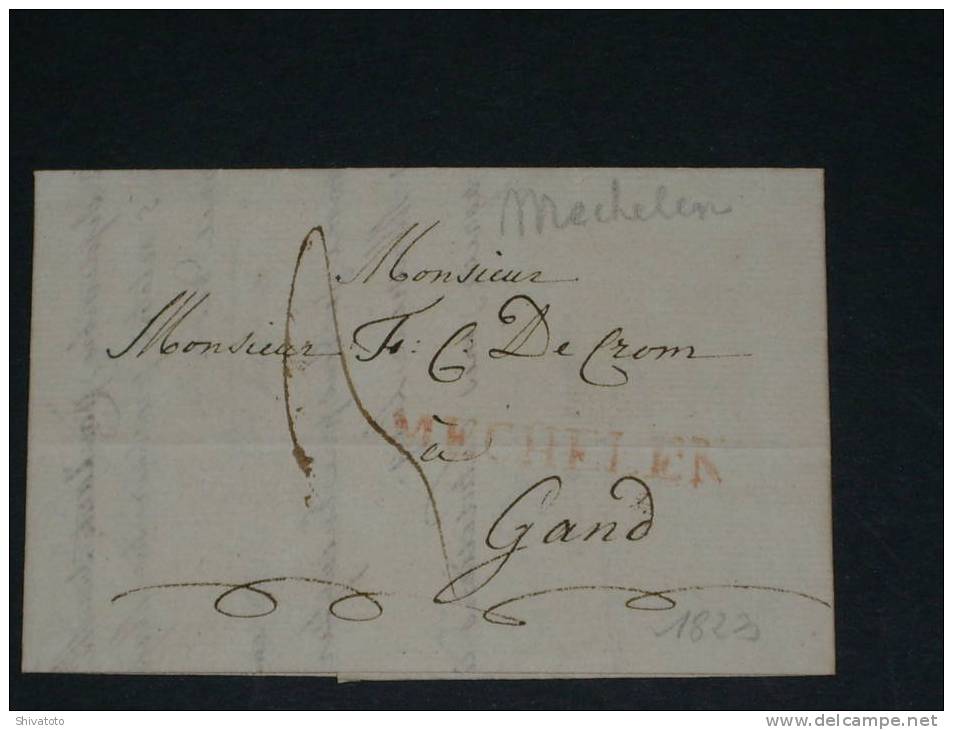 Mechelen
Monsieur
Monsieur F: C: De Crom
MECHELEN
à
Gand
1823
Shivatoto
www.delcampe.net